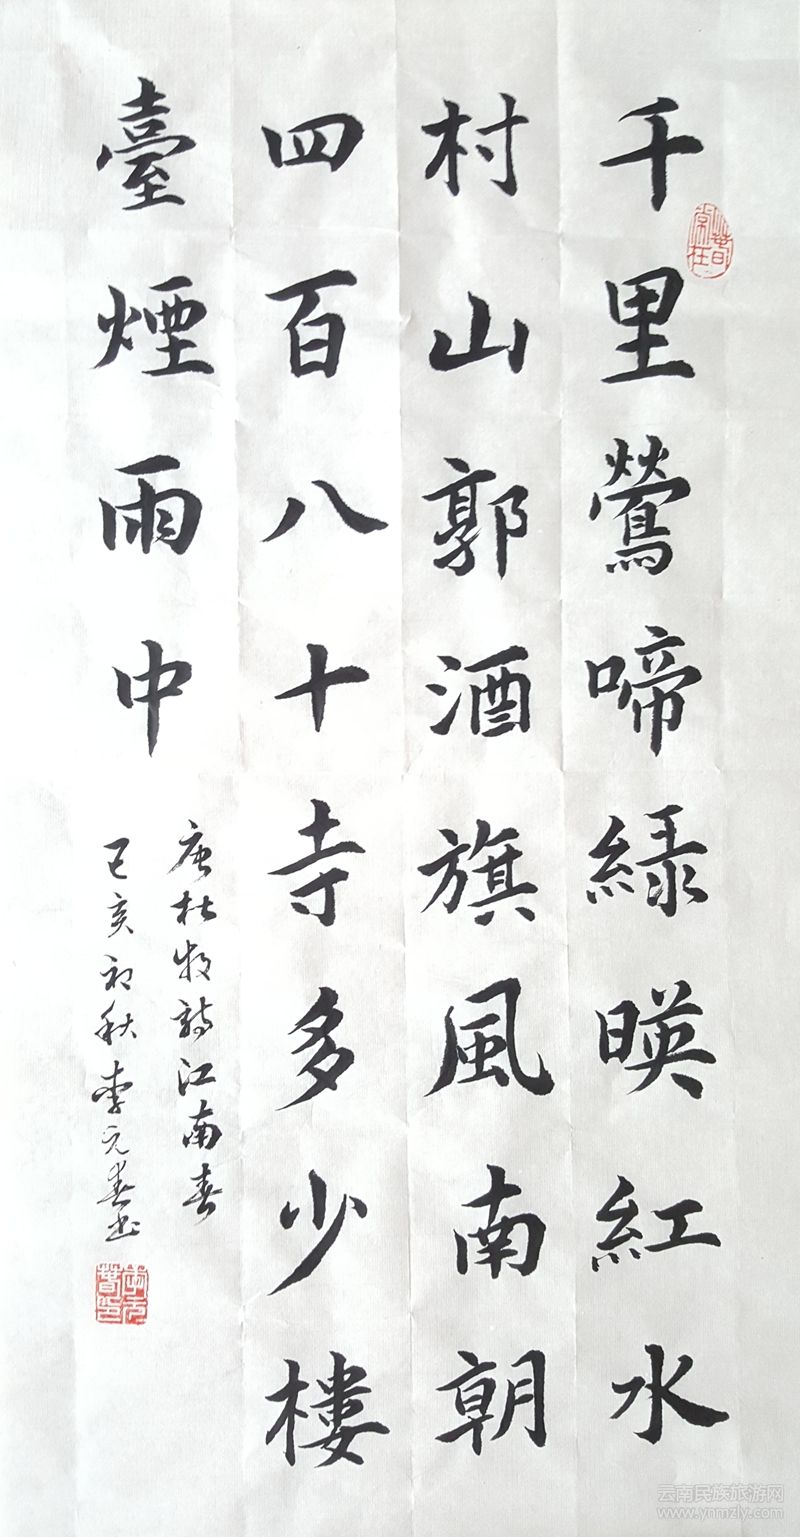 千里鶯啼綠暎紅水
村山郭酒旗風南朝
四百八十寺多少樓
臺煙雨中
唐杜牧詩江南春
己亥初秋李元春書
云南民族旅游网
www.ynmzly.com